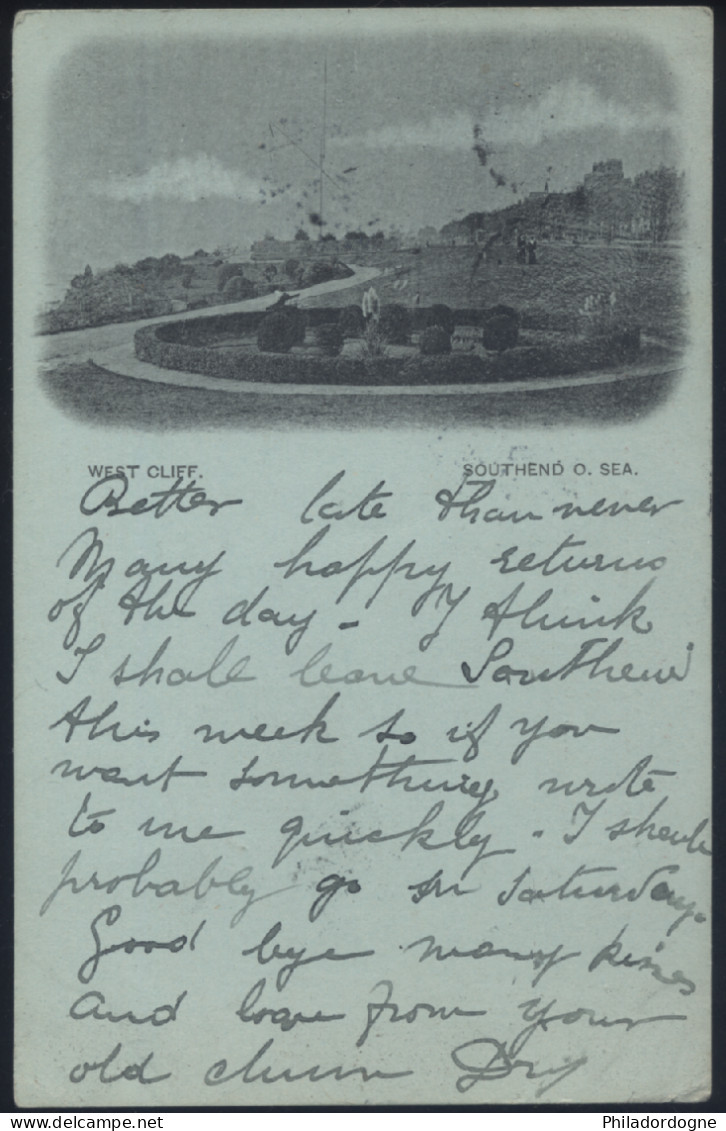 WEST CLIFF. SOUTHEND O. SEA.
Better late than never
Many happy returns
of the day - I think
I shall leave Southend
this week so if you
want something write
to me quickly. I shall
probably go on Saturday.
Good bye many kisses
and love from your
old chum
Philadordogne